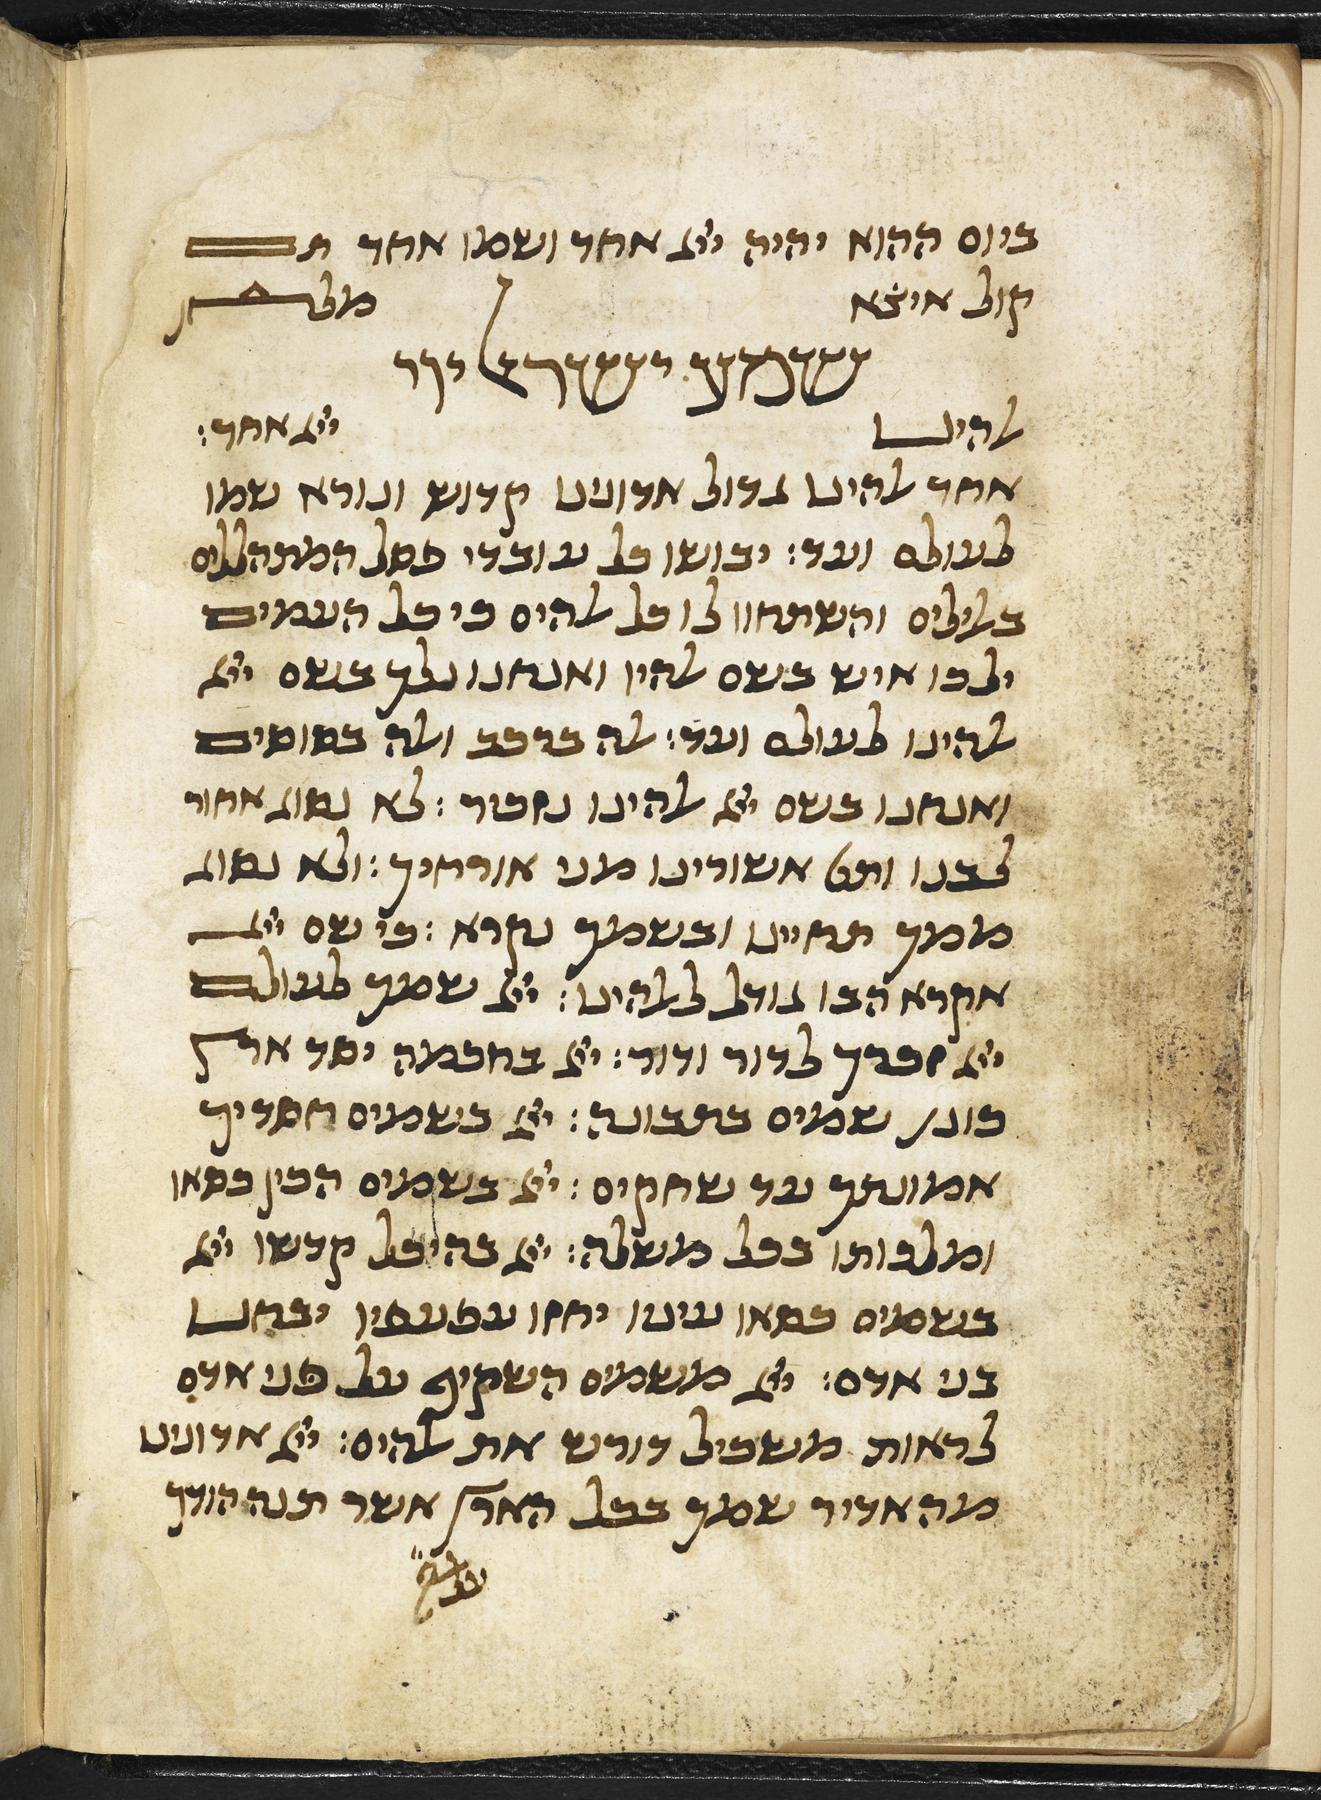 ביום ההוא יהיה ייי אחד ושמו אחד תם
קול איצא מלחן
שמע ישראל ייי
אלהינו ייי אחד:
אחד אלהינו גדול אדונינו קדוש ונורא שמו
לעולם ועד: יבושו כל עובדי פסל המתהללים
באלילים והשתחוו לו כל אלהים כי כל העמים
ילכו איש בשם אלהיו ואנחנו נלך בשם ייי
אלהינו לעולם ועד: אלה ברכב ואלה בסוסים
ואנחנו בשם ייי אלהינו נזכיר: לא נסוג אחור
לבנו ותט אשורינו מני אורחיך: ולא נסוג
ממך תחיינו ובשמך נקרא: כי שם ייי
אקרא הבו גודל לאלהינו: ייי שמך לעולם
ייי זכרך לדור ודור: ייי בחכמה יסד ארץ
כונן שמים בתבונה: ייי בשמים חסדיך
אמונתך עד שחקים: ייי בשמים הכין כסאו
ומלכותו בכל משלה: ייי בהיכל קדשו ייי
בשמים כסאו עיניו יחזו עפעפיו יבחנו
בני אדם: ייי משמים השקיף על פני אדם
לראות משכיל דורש את אלהים: ייי אדונינו
מה אדיר שמך בכל הארץ אשר תנה הודך